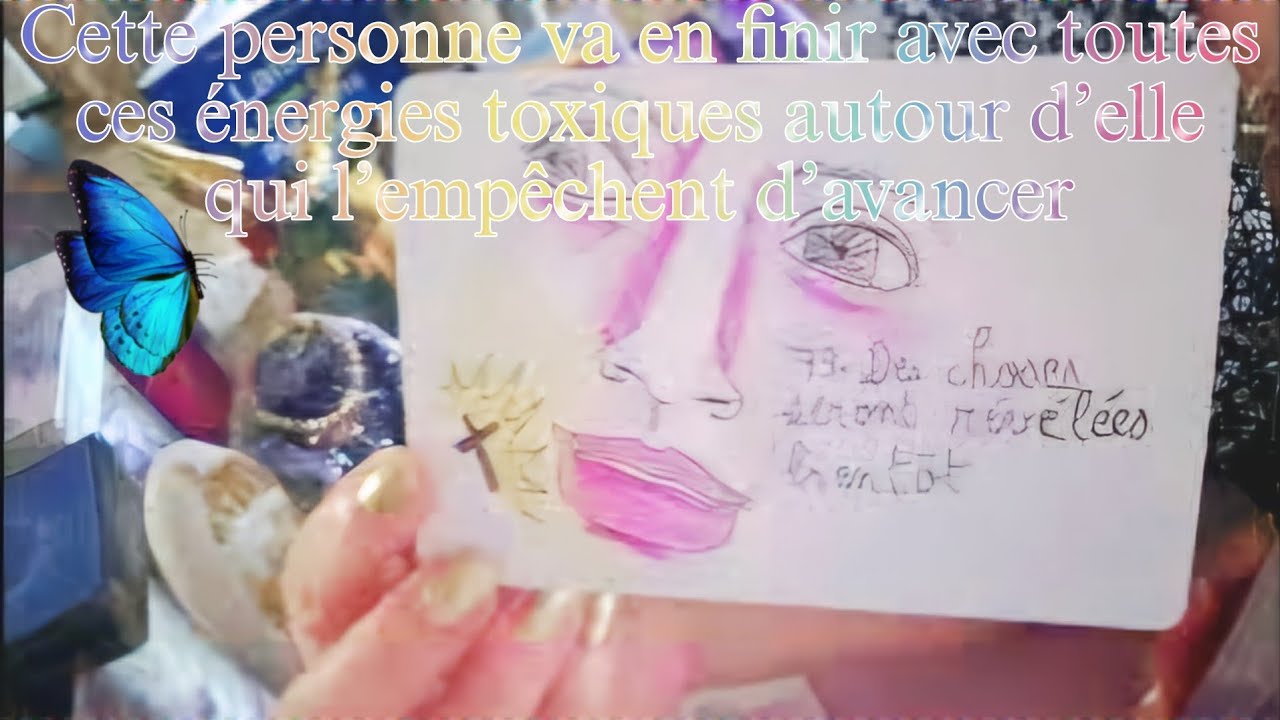 Cette personne va en finir avec toutes
ces énergies toxiques autour d’elle
qui l’empêchent d’avancer
79. Des choses
seront révélées
bientôt